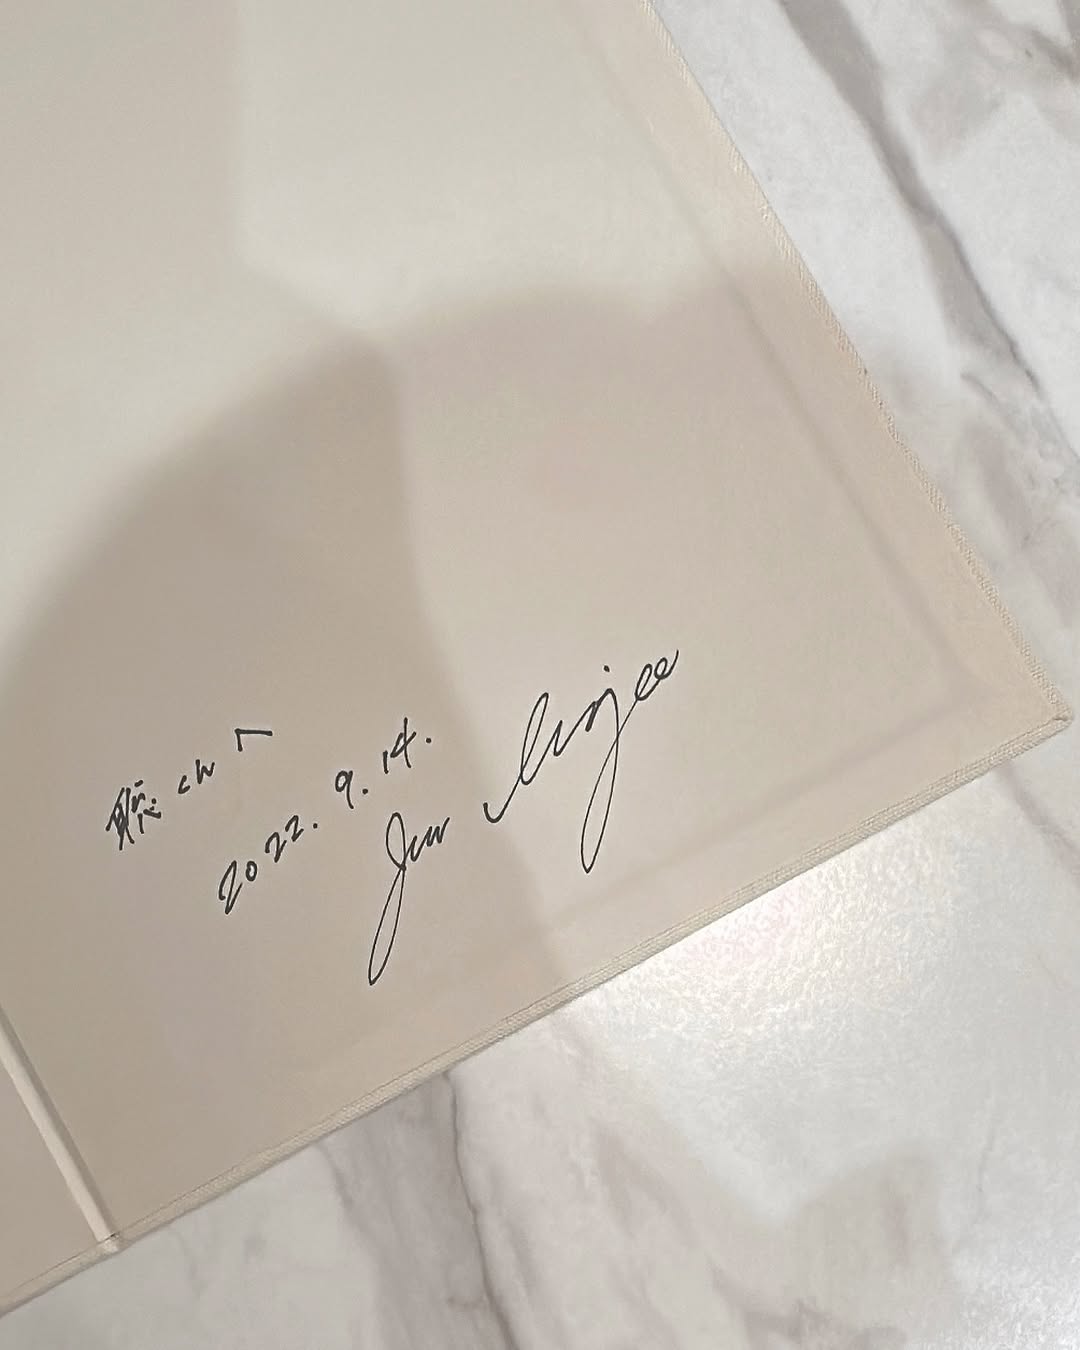 聡さんへ
2022. 9. 14.
Jun Minjee